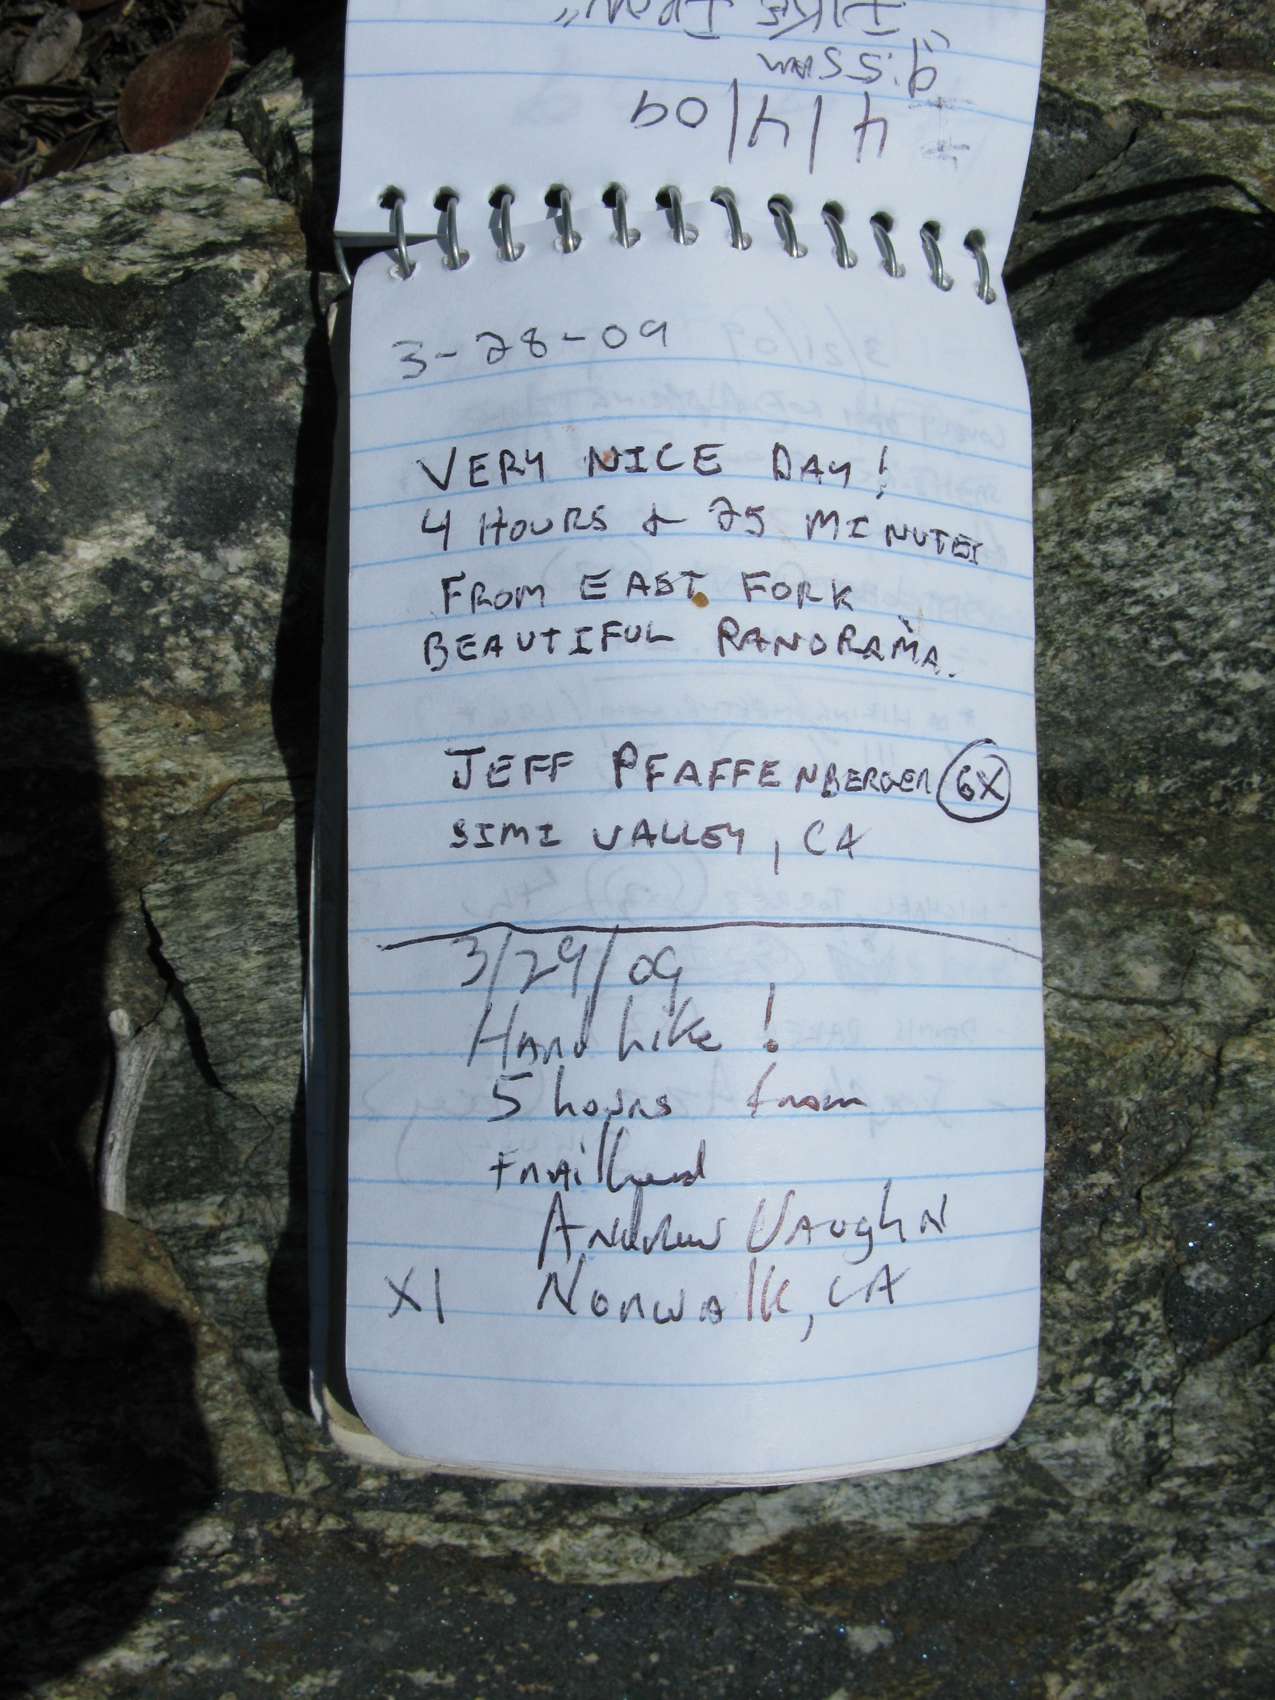 4/4/09
3-28-09
VERY NICE DAY!
4 HOURS & 25 MINUTES
FROM EAST FORK
BEAUTIFUL PANORAMA.
JEFF PFAFFENBERGER 6X
SIMI VALLEY, CA
3/29/09
Hard hike!
5 hours from
trailhead
Andrew Vaughn
X1 Norwalk, CA